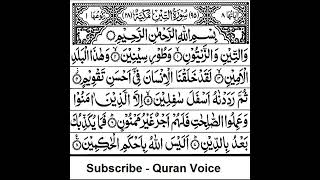 اٰیاتها ٨ (٩٥) سُوْرَةُ التِّيْنِ مَكِّيَّةٌ (٢٨) رُكُوْعُهَا ١
بِسْمِ اللّٰهِ الرَّحْمٰنِ الرَّحِيْمِ
وَالتِّيْنِ وَالزَّيْتُوْنِ ۝ وَطُوْرِ سِيْنِيْنَ ۝ وَهٰذَا الْبَلَدِ
الْاَمِيْنِ ۝ لَقَدْ خَلَقْنَا الْاِنْسَانَ فِيْۤ اَحْسَنِ تَقْوِيْمٍ ۝
ثُمَّ رَدَدْنٰهُ اَسْفَلَ سٰفِلِيْنَ ۝ اِلَّا الَّذِيْنَ اٰمَنُوْا
وَعَمِلُوا الصّٰلِحٰتِ فَلَهُمْ اَجْرٌ غَيْرُ مَمْنُوْنٍ ۝ فَمَا يُكَذِّبُكَ
بَعْدُ بِالدِّيْنِ ۝ اَلَيْسَ اللّٰهُ بِاَحْكَمِ الْحٰكِمِيْنَ ۝
Subscribe - Quran Voice